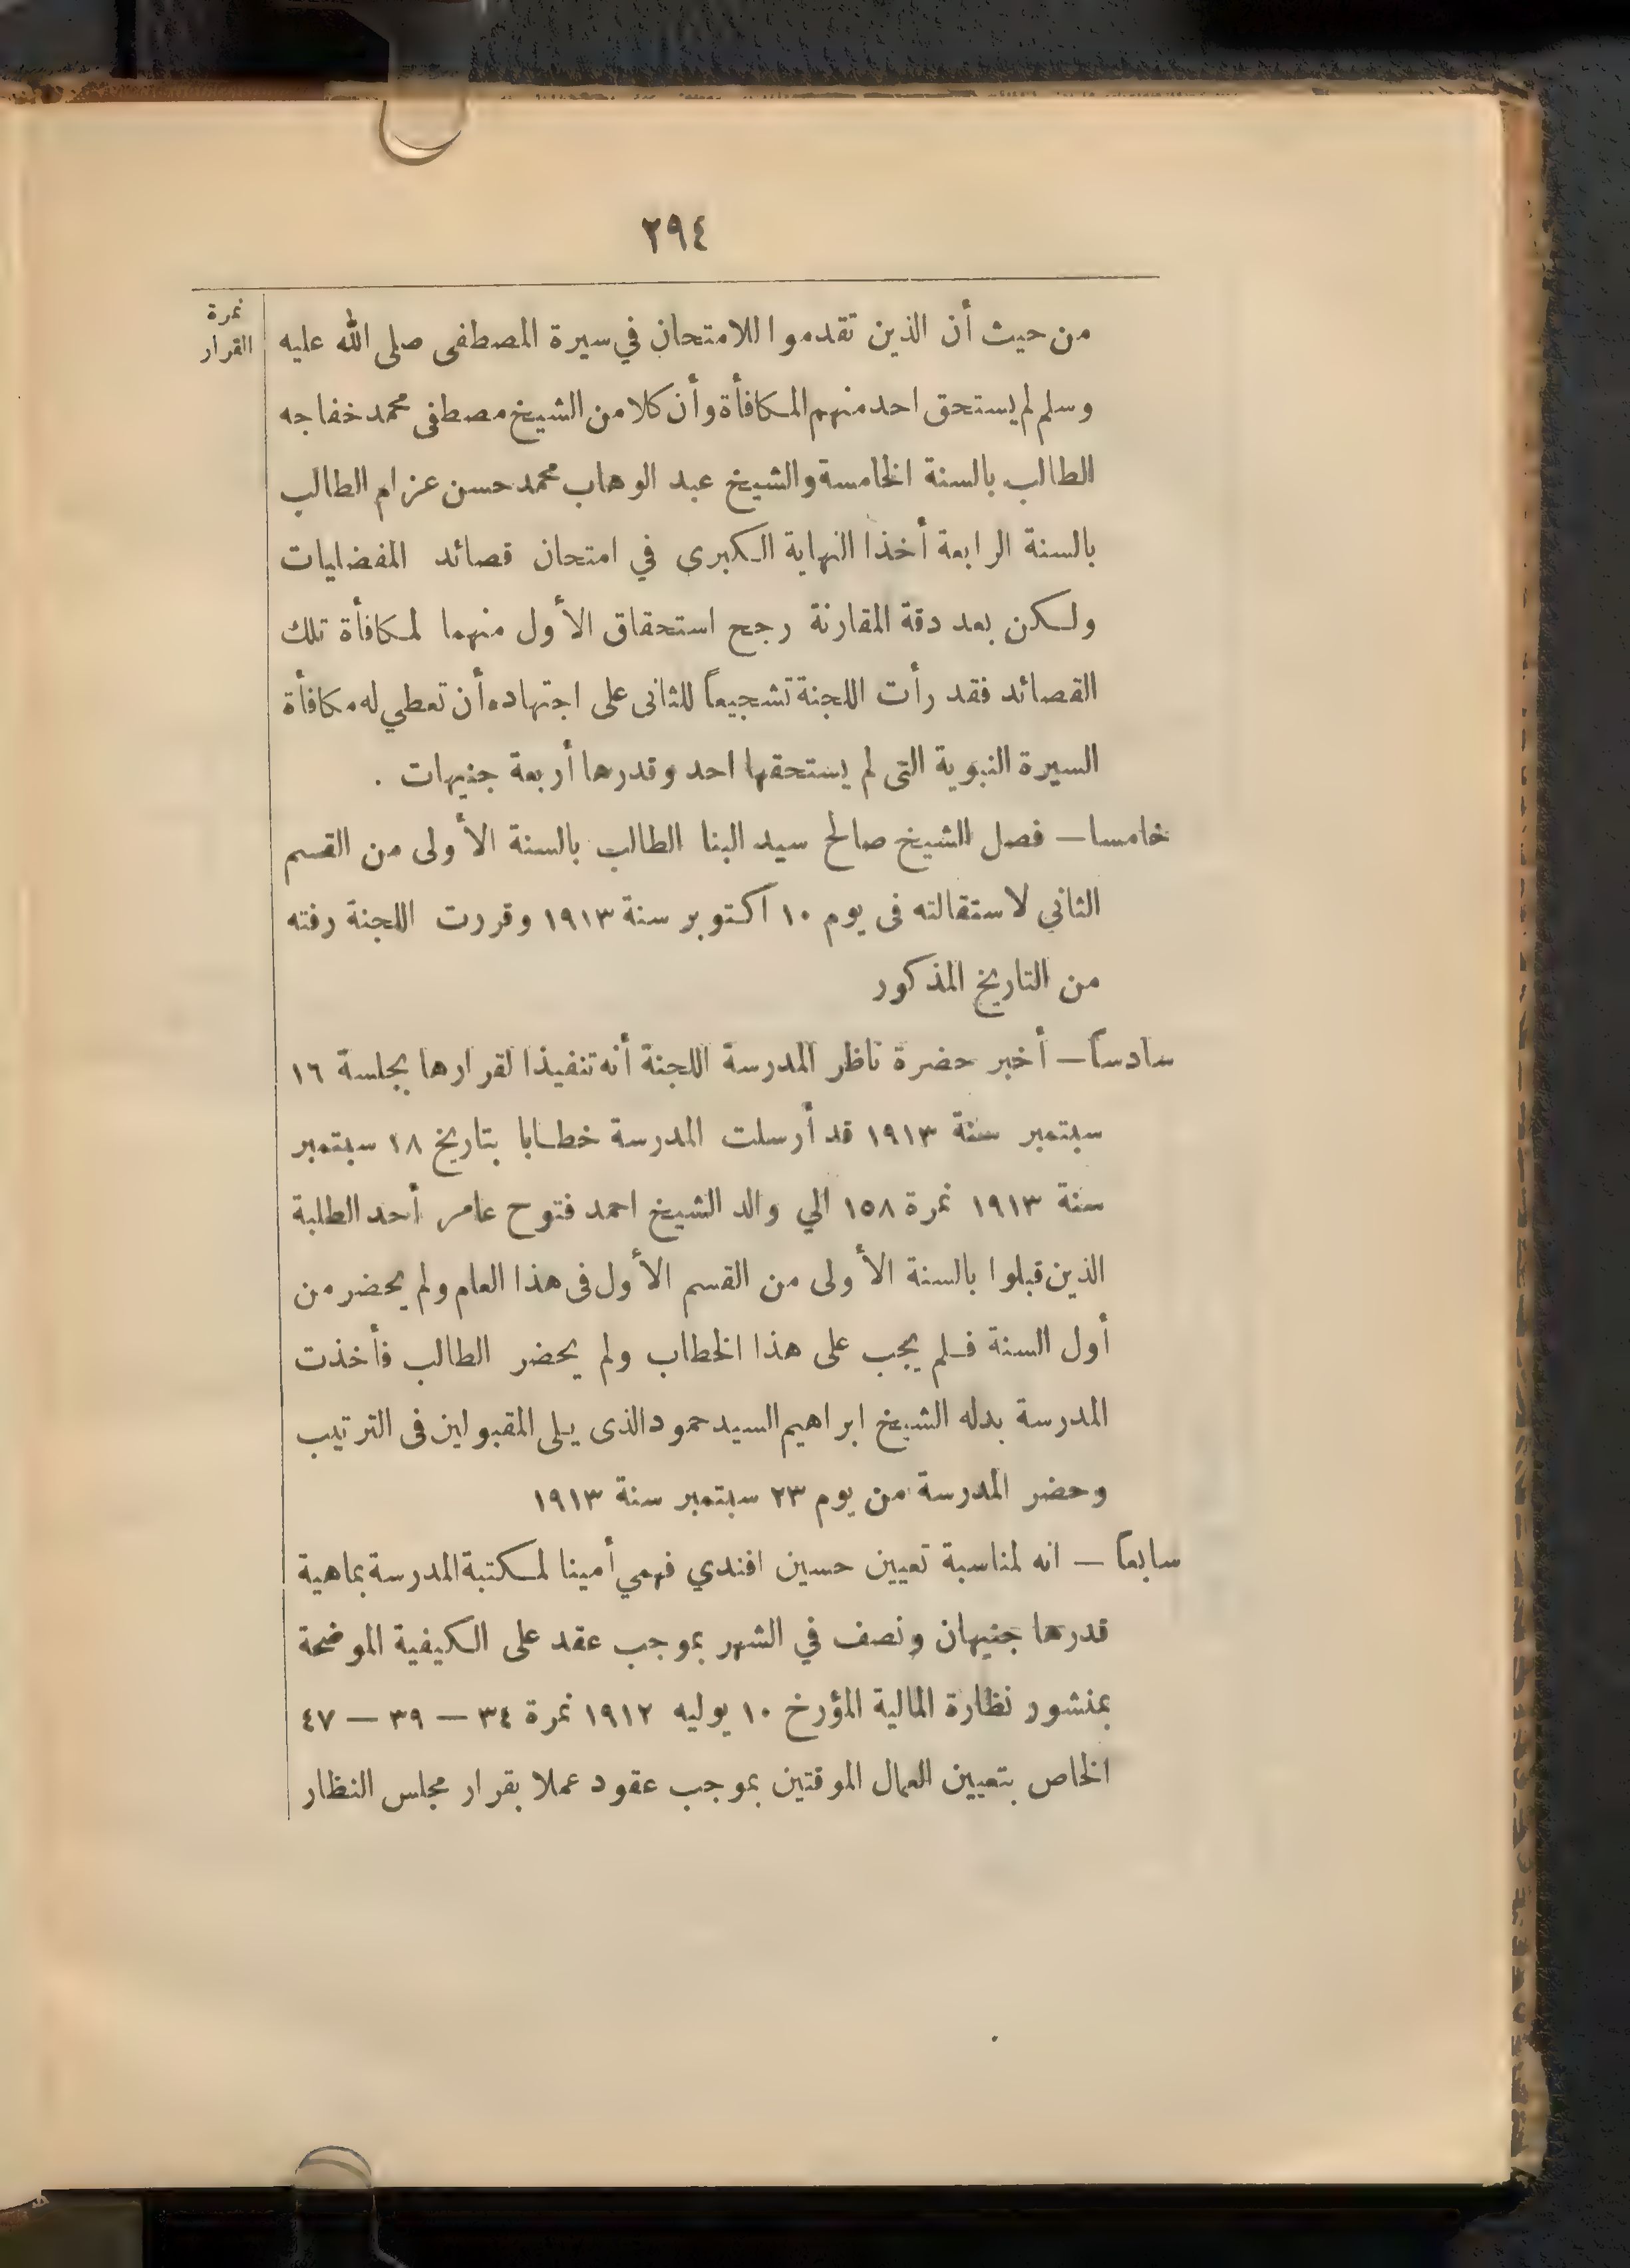 ٢٩٤
نمرة
القرار
من حيث أن الذين تقدموا للامتحان في سيرة المصطفى صلى الله عليه
وسلم لم يستحق احد منهم المكافأة وأن كلا من الشيخ مصطفى محمد خفاجه
الطالب بالسنة الخامسة والشيخ عبد الوهاب محمد حسن عزام الطالب
بالسنة الرابعة أخذا النهاية الكبرى في امتحان قصائد المفضليات
ولكن بعد دقة المقارنة رجح استحقاق الأول منهما لمكافأة تلك
القصائد فقد رأت اللجنة تشجيعاً للثانى على اجتهاده أن تعطي له مكافأة
السيرة النبوية التى لم يستحقها احد وقدرها أربعة جنيهات .
خامسا — فصل الشيخ صالح سيد البنا الطالب بالسنة الأولى من القسم
الثاني لاستقالته فى يوم ١٠ اكتوبر سنة ١٩١٣ وقررت اللجنة رفته
من التاريخ المذكور
سادساً — أخبر حضرة ناظر المدرسة اللجنة أنه تنفيذا لقرارها بجلسة ١٦
سبتمبر سنة ١٩١٣ قد أرسلت المدرسة خطابا بتاريخ ١٨ سبتمبر
سنة ١٩١٣ نمرة ١٥٨ الي والد الشيخ احمد فتوح عامر أحد الطلبة
الذين قبلوا بالسنة الأولى من القسم الأول فى هذا العام ولم يحضر من
أول السنة فلم يجب على هذا الخطاب ولم يحضر الطالب فأخذت
المدرسة بدله الشيخ ابراهيم السيد حمود الذى يلى المقبولين فى الترتيب
وحضر المدرسة من يوم ٢٣ سبتمبر سنة ١٩١٣
سابعاً — انه لمناسبة تعيين حسين افندي فهمي أمينا لمكتبة المدرسة بماهية
قدرها جنيهان ونصف في الشهر بموجب عقد على الكيفية الموضحة
بمنشور نظارة المالية المؤرخ ١٠ يوليه ١٩١٢ نمرة ٣٤ — ٣٩ — ٤٧
الخاص بتعيين العمال الموقتين بموجب عقود عملا بقرار مجلس النظار